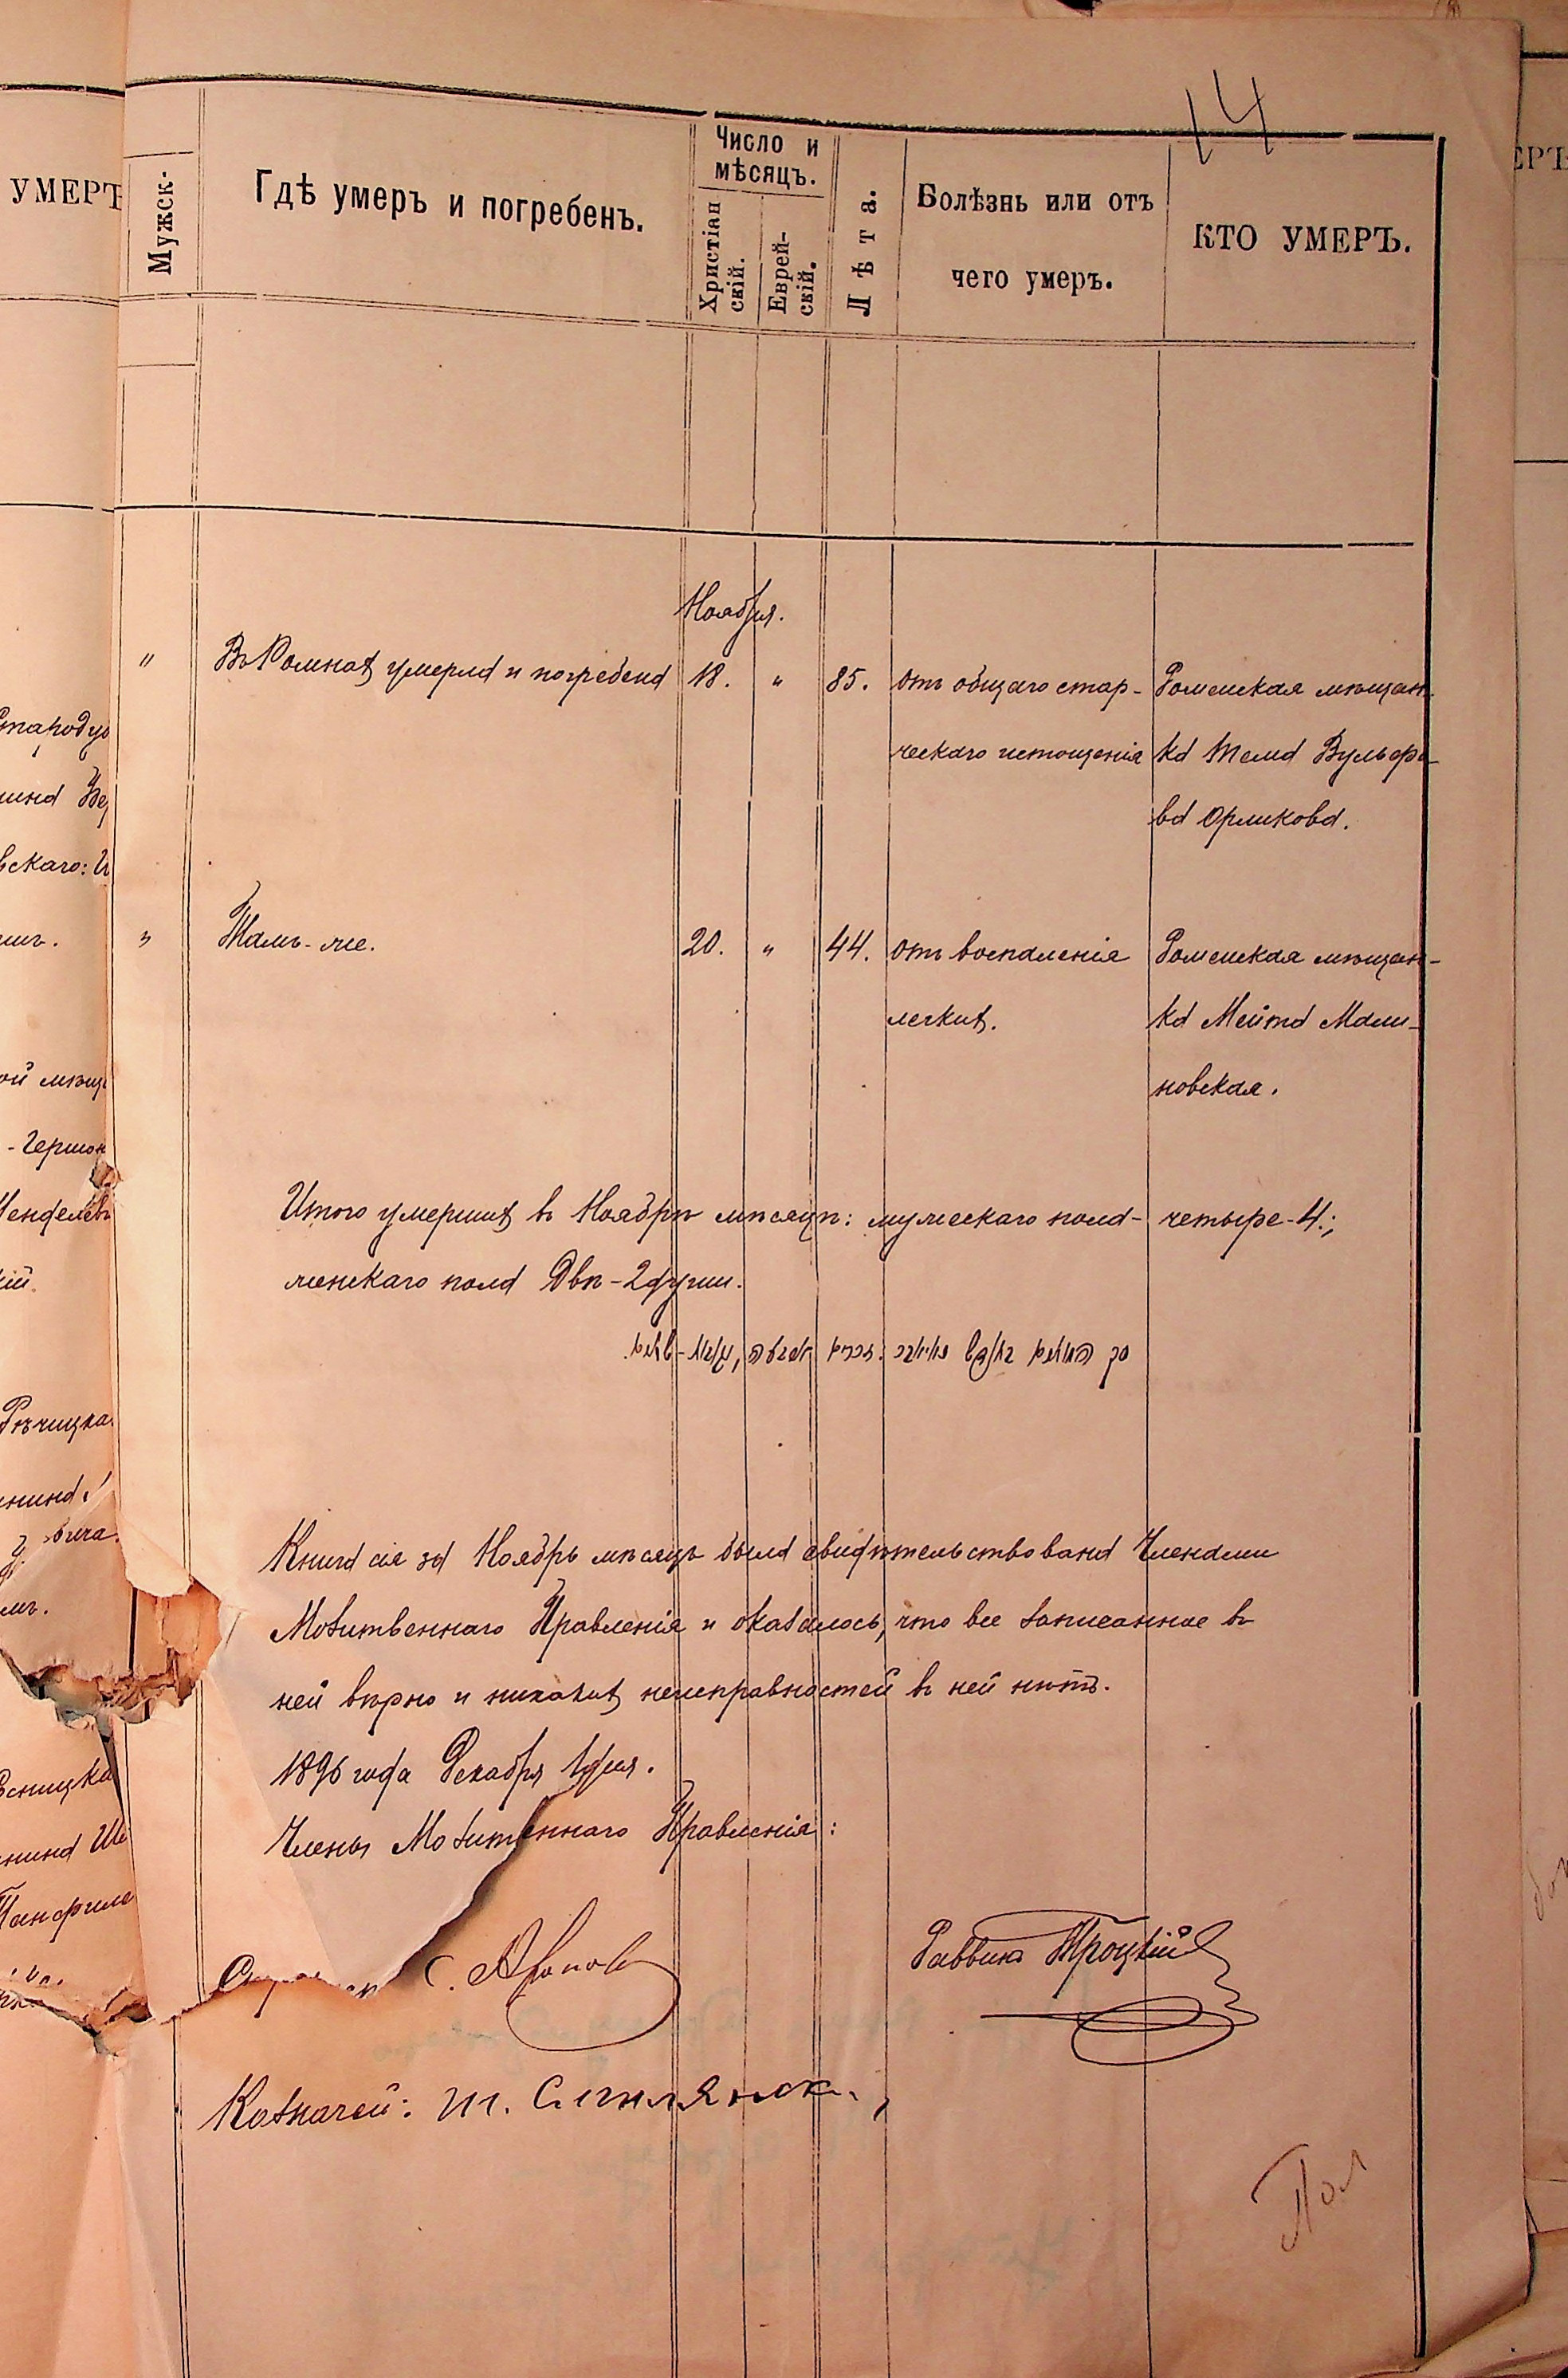 14
УМЕРЪ
Мужск-
Гдѣ умеръ и погребенъ.
Число и
мѣсяцъ.
Христіан
скій.
Еврей-
скій.
Лѣта.
Болѣзнь или отъ
чего умеръ.
КТО УМЕРЪ.
Ноября.
" Въ Ромнахъ умерла и погребена 18. " 85. отъ общаго стар- Роменская мѣщан-
ческаго истощенія ка Тема Вульфо-
ва Орликова.
" Тамъ-же. 20. " 44. отъ воспаленія Роменская мѣщан-
легкихъ. ка Мейта Мали-
новская.
Итого умершихъ въ Ноябрѣ мѣсяцѣ: мужескаго пола- четыре-4.;
женскаго пола Двѣ-2 души.
Книга сія за Ноябрь мѣсяцъ была свидѣтельствована Членами
Молитвеннаго Правленія и оказалось, что все записанное въ
ней вѣрно и никакихъ неисправностей въ ней нѣтъ.
1896 года Декабря 1 дня.
Члены Молитвеннаго Правленія:
Раввинъ Троцкій
Казначей: